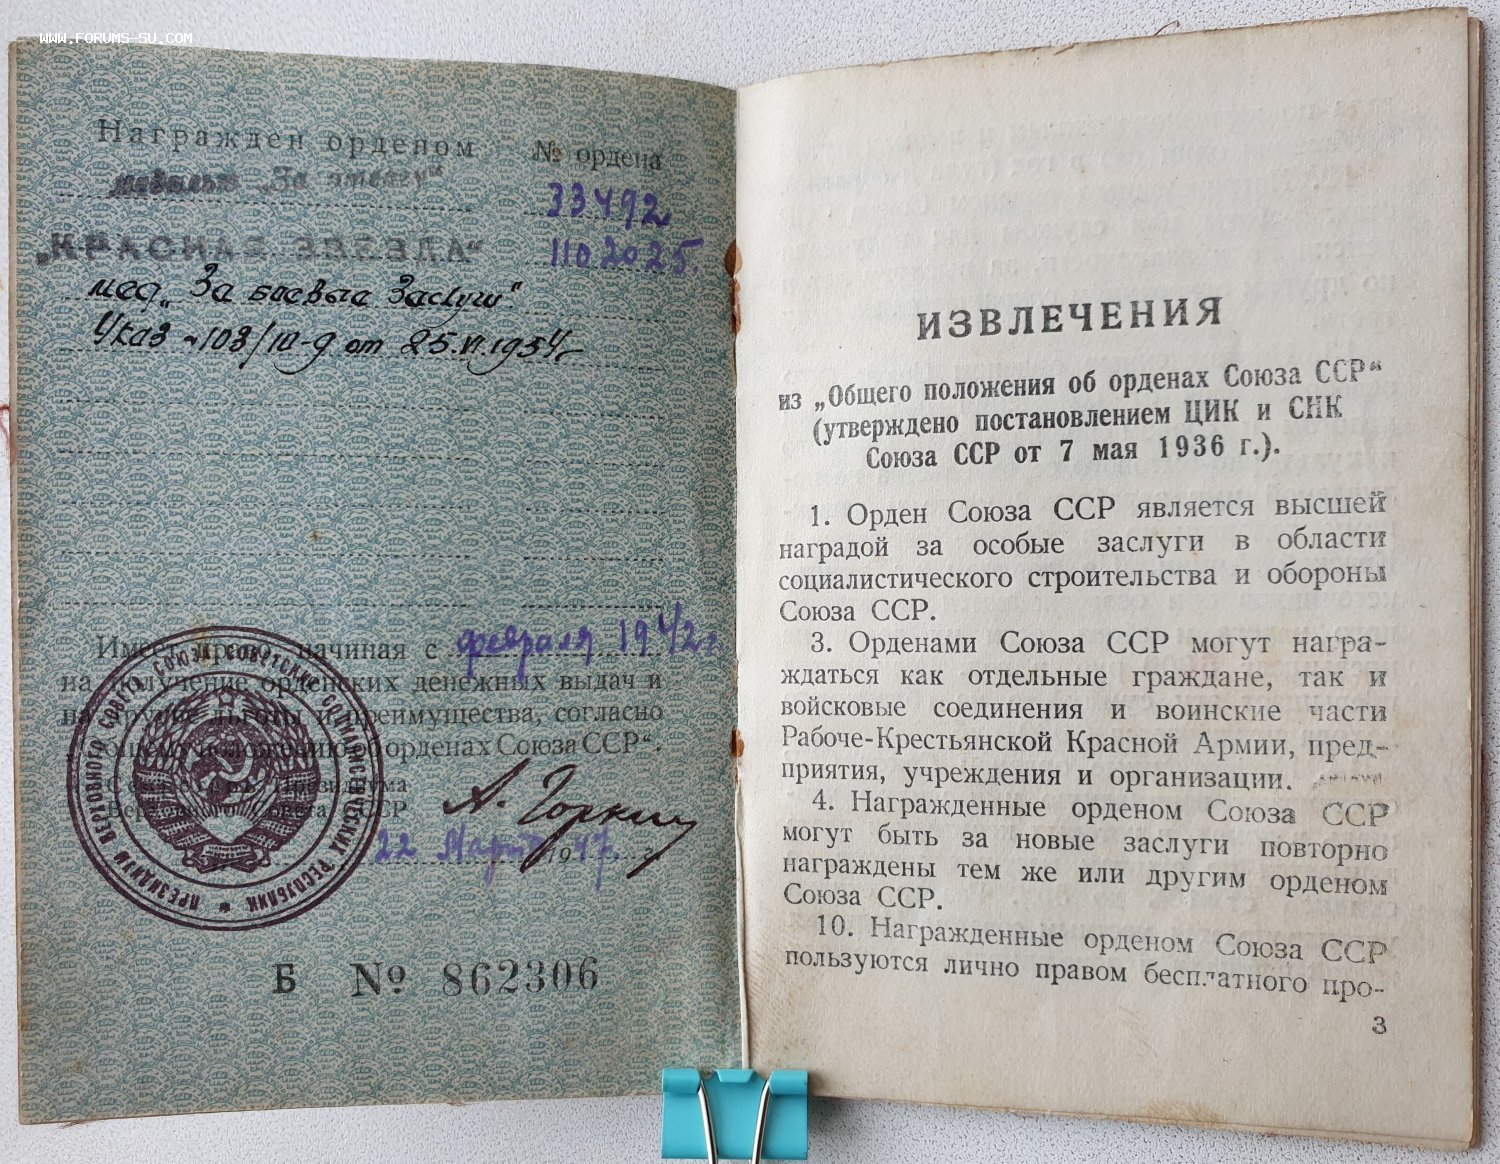 WWW.FORUMS-SU.COM
Награжден орденом № ордена
медалью „За отвагу“ 33492
„КРАСНАЯ ЗВЕЗДА“ 1102025.
мед. „За боевые Заслуги“
Указ №108/10-9 от 25.VI.1954
Имеет право, начиная с февраля 1942 г.
на получение орденских денежных выдач и
на другие льготы и преимущества, согласно
„Общему положению об орденах Союза ССР“.
Секретарь Президиума
Верховного Совета СССР А. Горкин
22 Марта 1947 г.
ПРЕЗИДИУМ ВЕРХОВНОГО СОВЕТА СОЮЗА СОВЕТСКИХ СОЦИАЛИСТИЧЕСКИХ РЕСПУБЛИК
Б № 862306
ИЗВЛЕЧЕНИЯ
из „Общего положения об орденах Союза ССР“
(утверждено постановлением ЦИК и СНК
Союза ССР от 7 мая 1936 г.).
1. Орден Союза ССР является высшей
наградой за особые заслуги в области
социалистического строительства и обороны
Союза ССР.
3. Орденами Союза ССР могут награ-
ждаться как отдельные граждане, так и
войсковые соединения и воинские части
Рабоче-Крестьянской Красной Армии, пред-
приятия, учреждения и организации.
4. Награжденные орденом Союза ССР
могут быть за новые заслуги повторно
награждены тем же или другим орденом
Союза ССР.
10. Награжденные орденом Союза ССР
пользуются лично правом бесплатного про-
3